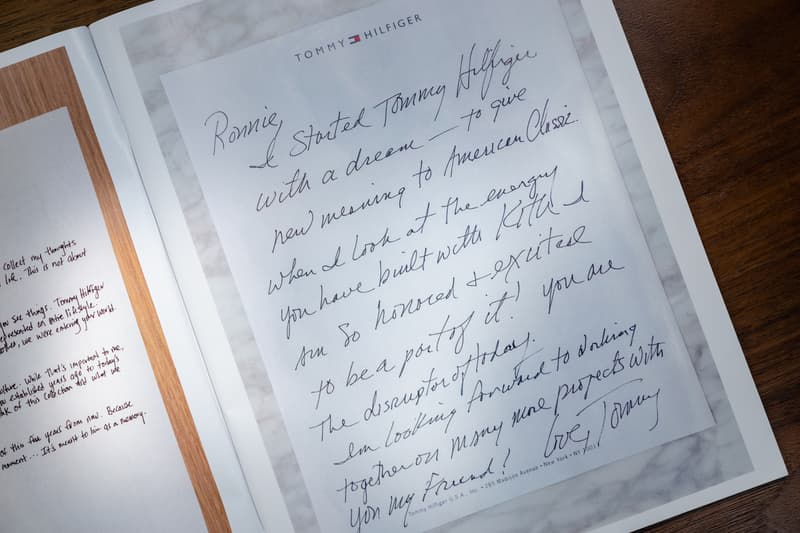 collect my thoughts
life. This is not about
you see things. Tommy Hilfiger
represented an entire lifestyle.
we were entering your world.
While that's important to me.
you established years ago to today's
of this collection did what we
this five years from now. Because
moment... It's meant to live as a memory.
TOMMY HILFIGER
Ronnie,
I started Tommy Hilfiger
with a dream — to give
new meaning to American Classic.
when I look at the energy
you have built with Kith I
am so honored & excited
to be a part of it! you are
The disruptor of today.
I'm looking forward to working
together on many more projects with
you my Friend! Love, Tommy
Tommy Hilfiger U.S.A., Inc. • 285 Madison Avenue • New York • NY 10017